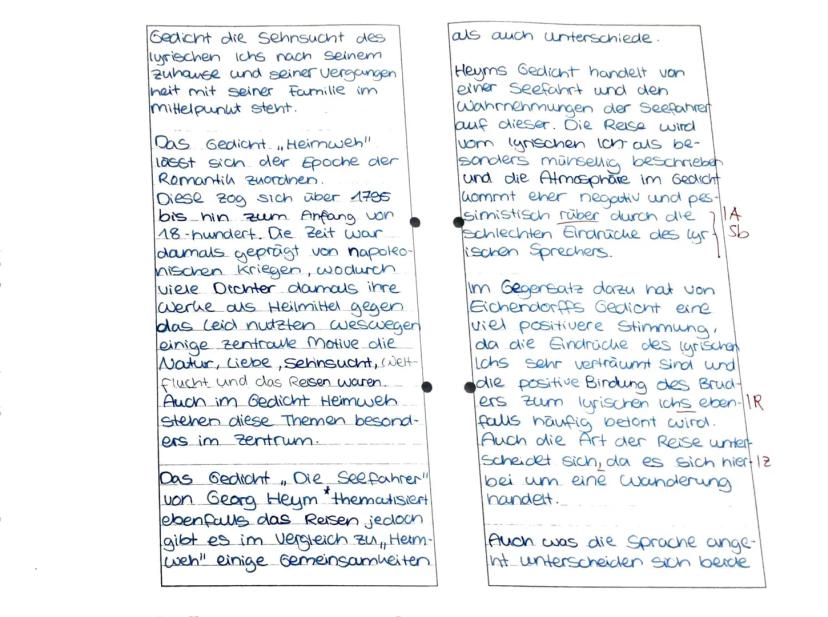 Gedicht die Sehnsucht des
lyrischen Ichs nach seinem
zuhause und seiner Vergangen
heit mit seiner Familie im
Mittelpunkt steht.
Das Gedicht „Heimweh"
lässt sich der Epoche der
Romantik zuordnen.
Diese zog sich über 1795
bis hin zum Anfang von
18-hundert. Die Zeit war
damals geprägt von napoleo-
nischen Kriegen, wodurch
viele Dichter damals ihre
Werke als Heilmittel gegen
das Leid nutzten weswegen
einige zentrale Motive die
Natur, Liebe, Sehnsucht, Welt-
flucht und das Reisen waren.
Auch im Gedicht Heimweh
stehen diese Themen besond-
ers im Zentrum.
Das Gedicht „Die Seefahrer"
von Georg Heym * thematisiert
ebenfalls das Reisen jedoch
gibt es im Vergleich zu „Heim-
weh" einige Gemeinsamkeiten
als auch unterschiede.
Heyms Gedicht handelt von
einer Seefahrt und den
Wahrnehmungen der Seefahrer
auf dieser. Die Reise wird
vom lyrischen Ich als be-
sonders mürselig beschrieben
und die Atmosphäre im Gedicht
kommt eher negativ und pes-
simistisch rüber durch die IA
schlechten Eindrücke des lyr Sb
ischen Sprechers.
Im Gegensatz dazu hat von
Eichendorffs Gedicht eine
viel positivere Stimmung,
da die Eindrücke des lyrischen
Ichs sehr verträumt sind und
die positive Bindung des Brud-
ers zum lyrischen Ichs eben- IR
falls häufig betont wird.
Auch die Art der Reise unter-
scheidet sich, da es sich hier- IZ
bei um eine Wanderung
handelt.
Auch was die Sprache ange-
ht unterscheiden sich beide